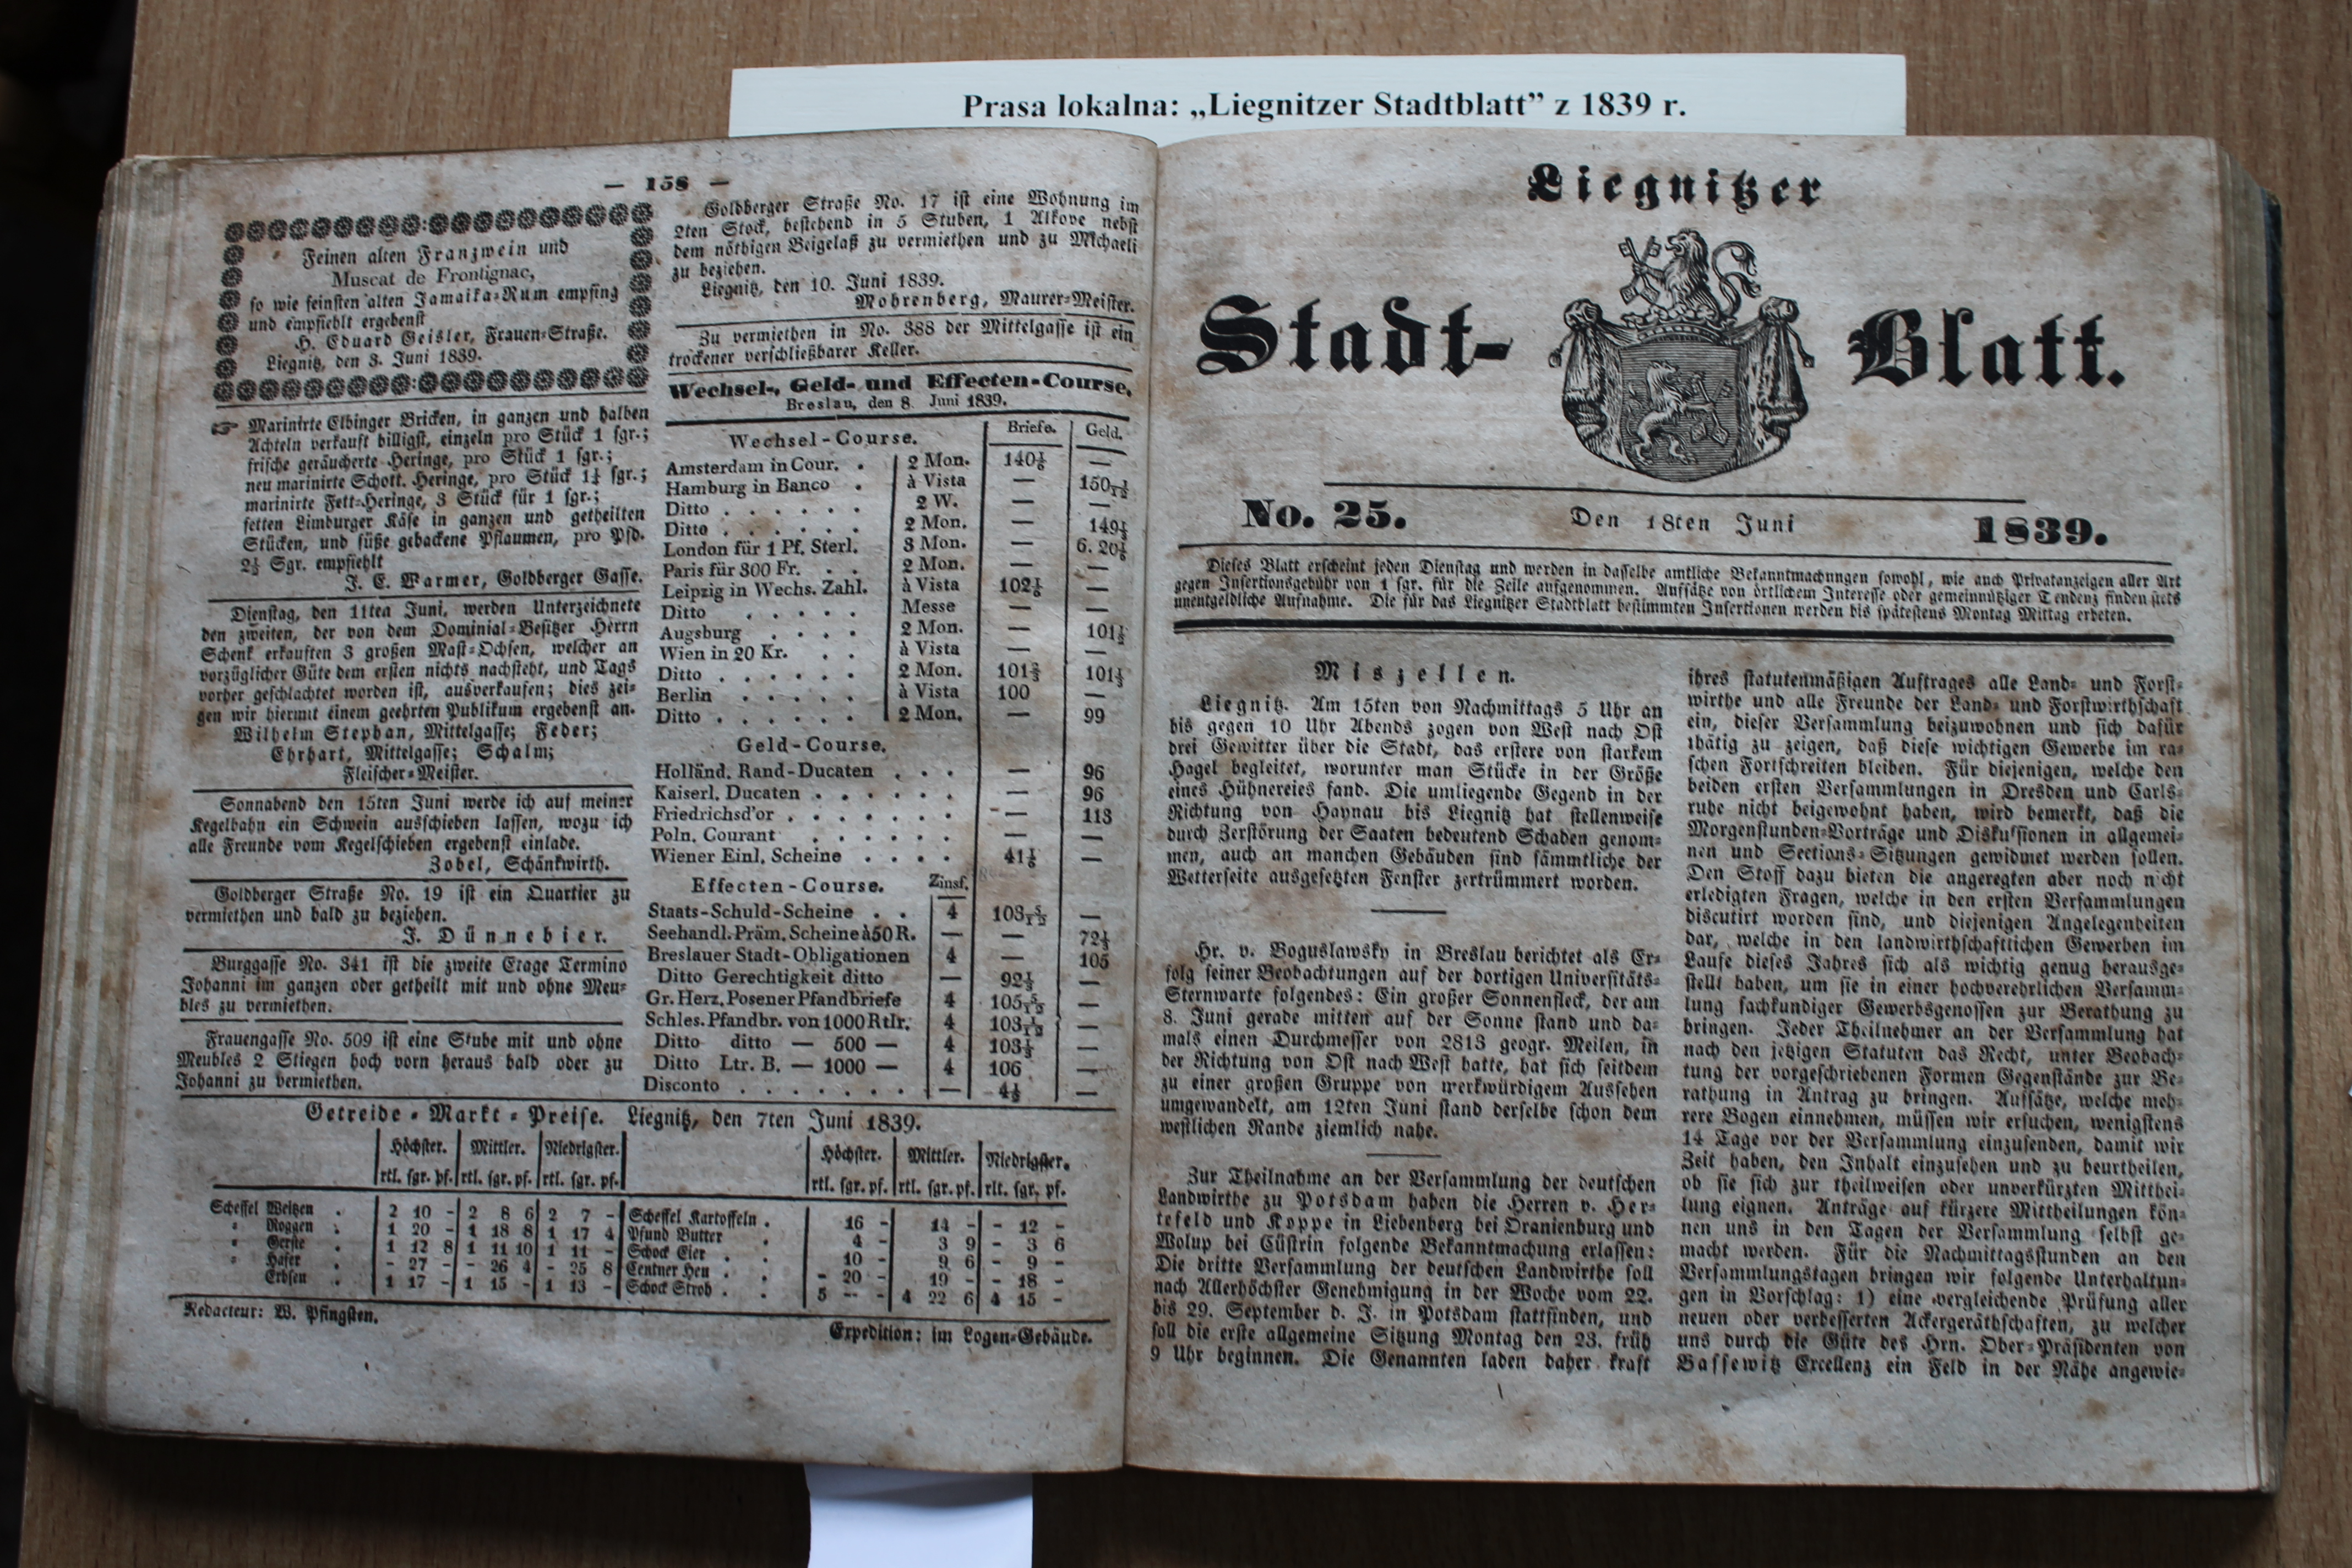 Prasa lokalna: „Liegnitzer Stadtblatt” z 1839 r.
— 158 —
Feinen alten Franzwein und
Muscat de Frontignac,
so wie feinsten alten Jamaika-Rum empfing
und empfiehlt ergebenst
H. Eduard Geisler, Frauen-Straße.
Liegnitz, den 3. Juni 1839.
☞ Marinirte Elbinger Bricken, in ganzen und halben
Achteln verkauft billigst, einzeln pro Stück 1 sgr.;
frische geräucherte Heringe, pro Stück 1 sgr.;
neu marinirte Schott. Heringe, pro Stück 1¼ sgr.;
marinirte Fett-Heringe, 3 Stück für 1 sgr.;
fetten Limburger Käse in ganzen und getheilten
Stücken, und süße gebackene Pflaumen, pro Pfd.
2½ Sgr. empfiehlt
J. C. Warmer, Goldberger Gasse.
Dienstag, den 11ten Juni, werden Unterzeichnete
den zweiten, der von dem Dominial-Besitzer Herrn
Schenk erkauften 3 großen Mast-Ochsen, welcher an
vorzüglicher Güte dem ersten nichts nachsteht, und Tags
vorher geschlachtet worden ist, ausverkaufen; dies zei-
gen wir hiermit einem geehrten Publikum ergebenst an.
Wilhelm Stephan, Mittelgasse; Feder;
Ehrhart, Mittelgasse; Schalm;
Fleischer-Meister.
Sonnabend den 15ten Juni werde ich auf meiner
Kegelbahn ein Schwein ausschieben lassen, wozu ich
alle Freunde vom Kegelschieben ergebenst einlade.
Zobel, Schänkwirth.
Goldberger Straße No. 19 ist ein Quartier zu
vermiethen und bald zu beziehen.
J. Dünnebier.
Burggasse No. 341 ist die zweite Etage Termino
Johanni im ganzen oder getheilt mit und ohne Meu-
bles zu vermiethen.
Frauengasse No. 509 ist eine Stube mit und ohne
Meubles 2 Stiegen hoch vorn heraus bald oder zu
Johanni zu vermiethen.
Goldberger Straße No. 17 ist eine Wohnung im
2ten Stock, bestehend in 5 Stuben, 1 Alkove nebst
dem nöthigen Beigelaß zu vermiethen und zu Michaeli
zu beziehen.
Liegnitz, den 10. Juni 1839.
Mohrenberg, Maurer-Meister.
Zu vermiethen in No. 388 der Mittelgasse ist ein
trockener verschließbarer Keller.
Wechsel-, Geld- und Effecten-Course.
Breslau, den 8. Juni 1839.
Wechsel-Course. Briefe. Geld.
Amsterdam in Cour. . 2 Mon. 140⅙ —
Hamburg in Banco . à Vista — 150 1/12
Ditto . . . . . . 2 W. — —
Ditto . . . . . . 2 Mon. — 149⅓
London für 1 Pf. Sterl. 3 Mon. — 6. 20⅙
Paris für 300 Fr. . . 2 Mon. — —
Leipzig in Wechs. Zahl. à Vista 102⅙ —
Ditto . . . . . Messe — —
Augsburg . . . . 2 Mon. — 101½
Wien in 20 Kr. . . à Vista — —
Ditto . . . . . . 2 Mon. 101⅔ 101⅓
Berlin . . . . . à Vista 100 —
Ditto . . . . . . 2 Mon. — 99
Geld-Course.
Holländ. Rand-Ducaten . . . — 96
Kaiserl. Ducaten . . . . . . — 96
Friedrichsd'or . . . . . . . — 113
Poln. Courant . . . . . . — —
Wiener Einl. Scheine . . . . 41⅙ —
Effecten-Course. Zinsf.
Staats-Schuld-Scheine . . 4 103 5/12 —
Seehandl. Präm. Scheine à 50 R. — — 72⅓
Breslauer Stadt-Obligationen 4 — 105
Ditto Gerechtigkeit ditto — 92½ —
Gr. Herz. Posener Pfandbriefe 4 105 5/12 —
Schles. Pfandbr. von 1000 Rtlr. 4 103 1/12 —
Ditto ditto — 500 — 4 103⅓ —
Ditto Ltr. B. — 1000 — 4 106 —
Disconto . . . . . . . — 4½ —
Getreide-Markt-Preise. Liegnitz, den 7ten Juni 1839.
Höchster. Mittler. Niedrigster. Höchster. Mittler. Niedrigster.
rtl. sgr. pf. rtl. sgr. pf. rtl. sgr. pf. rtl. sgr. pf. rtl. sgr. pf. rlt. sgr. pf.
Scheffel Weitzen . 2 10 - 2 8 6 2 7 - Scheffel Kartoffeln . 16 - 14 - - 12 -
" Roggen . 1 20 - 1 18 8 1 17 4 Pfund Butter . 4 - 3 9 - 3 6
" Gerste . 1 12 8 1 11 10 1 11 - Schock Eier . . 10 - 9 6 - 9 -
" Hafer . - 27 - - 26 4 - 25 8 Centner Heu . . - 20 - 19 - - 18 -
Erbsen . 1 17 - 1 15 - 1 13 - Schock Stroh . . 5 - - 4 22 6 4 15 -
Redacteur: W. Pfingsten.
Expedition: im Logen-Gebäude.
Liegnitzer
Stadt-Blatt.
No. 25. Den 18ten Juni 1839.
Dieses Blatt erscheint jeden Dienstag und werden in dasselbe amtliche Bekanntmachungen sowohl, wie auch Privatanzeigen aller Art
gegen Insertionsgebühr von 1 sgr. für die Zeile aufgenommen. Aufsätze von örtlichem Interesse oder gemeinnütziger Tendenz finden stets
unentgeldliche Aufnahme. Die für das Liegnitzer Stadtblatt bestimmten Insertionen werden bis spätestens Montag Mittag erbeten.
Miszellen.
Liegnitz. Am 15ten von Nachmittags 5 Uhr an
bis gegen 10 Uhr Abends zogen von West nach Ost
drei Gewitter über die Stadt, das erstere von starkem
Hagel begleitet, worunter man Stücke in der Größe
eines Hühnereies fand. Die umliegende Gegend in der
Richtung von Haynau bis Liegnitz hat stellenweise
durch Zerstörung der Saaten bedeutend Schaden genom-
men, auch an manchen Gebäuden sind sämmtliche der
Wetterseite ausgesetzten Fenster zertrümmert worden.
Hr. v. Boguslawsky in Breslau berichtet als Er-
folg seiner Beobachtungen auf der dortigen Universitäts-
Sternwarte folgendes: Ein großer Sonnenfleck, der am
8. Juni gerade mitten auf der Sonne stand und da-
mals einen Durchmesser von 2813 geogr. Meilen, in
der Richtung von Ost nach West hatte, hat sich seitdem
zu einer großen Gruppe von merkwürdigem Aussehen
umgewandelt, am 12ten Juni stand derselbe schon dem
westlichen Rande ziemlich nahe.
Zur Theilnahme an der Versammlung der deutschen
Landwirthe zu Potsdam haben die Herren v. Her-
tefeld und Koppe in Liebenberg bei Oranienburg und
Wolup bei Cüstrin folgende Bekanntmachung erlassen:
Die dritte Versammlung der deutschen Landwirthe soll
nach Allerhöchster Genehmigung in der Woche vom 22.
bis 29. September d. J. in Potsdam stattfinden, und
soll die erste allgemeine Sitzung Montag den 23. früh
9 Uhr beginnen. Die Genannten laden daher kraft
ihres statutenmäßigen Auftrages alle Land- und Forst-
wirthe und alle Freunde der Land- und Forstwirthschaft
ein, dieser Versammlung beizuwohnen und sich dafür
thätig zu zeigen, daß diese wichtigen Gewerbe im ra-
schen Fortschreiten bleiben. Für diejenigen, welche den
beiden ersten Versammlungen in Dresden und Carls-
ruhe nicht beigewohnt haben, wird bemerkt, daß die
Morgenstunden-Vorträge und Diskussionen in allgemei-
nen und Sections-Sitzungen gewidmet werden sollen.
Den Stoff dazu bieten die angeregten aber noch nicht
erledigten Fragen, welche in den ersten Versammlungen
discutirt worden sind, und diejenigen Angelegenheiten
dar, welche in den landwirthschaftlichen Gewerben im
Laufe dieses Jahres sich als wichtig genug herausge-
stellt haben, um sie in einer hochverehrlichen Versamm-
lung fachkundiger Gewerbsgenossen zur Berathung zu
bringen. Jeder Theilnehmer an der Versammlung hat
nach den jetzigen Statuten das Recht, unter Beobach-
tung der vorgeschriebenen Formen Gegenstände zur Be-
rathung in Antrag zu bringen. Aufsätze, welche meh-
rere Bogen einnehmen, müssen wir ersuchen, wenigstens
14 Tage vor der Versammlung einzusenden, damit wir
Zeit haben, den Inhalt einzusehen und zu beurtheilen,
ob sie sich zur theilweisen oder unverkürzten Mitthei-
lung eignen. Anträge auf kürzere Mittheilungen kön-
nen uns in den Tagen der Versammlung selbst ge-
macht werden. Für die Nachmittagsstunden an den
Versammlungstagen bringen wir folgende Unterhaltun-
gen in Vorschlag: 1) eine vergleichende Prüfung aller
neuen oder verbesserten Ackergeräthschaften, zu welcher
uns durch die Güte des Hrn. Ober-Präsidenten von
Bassewitz Excellenz ein Feld in der Nähe angewie-